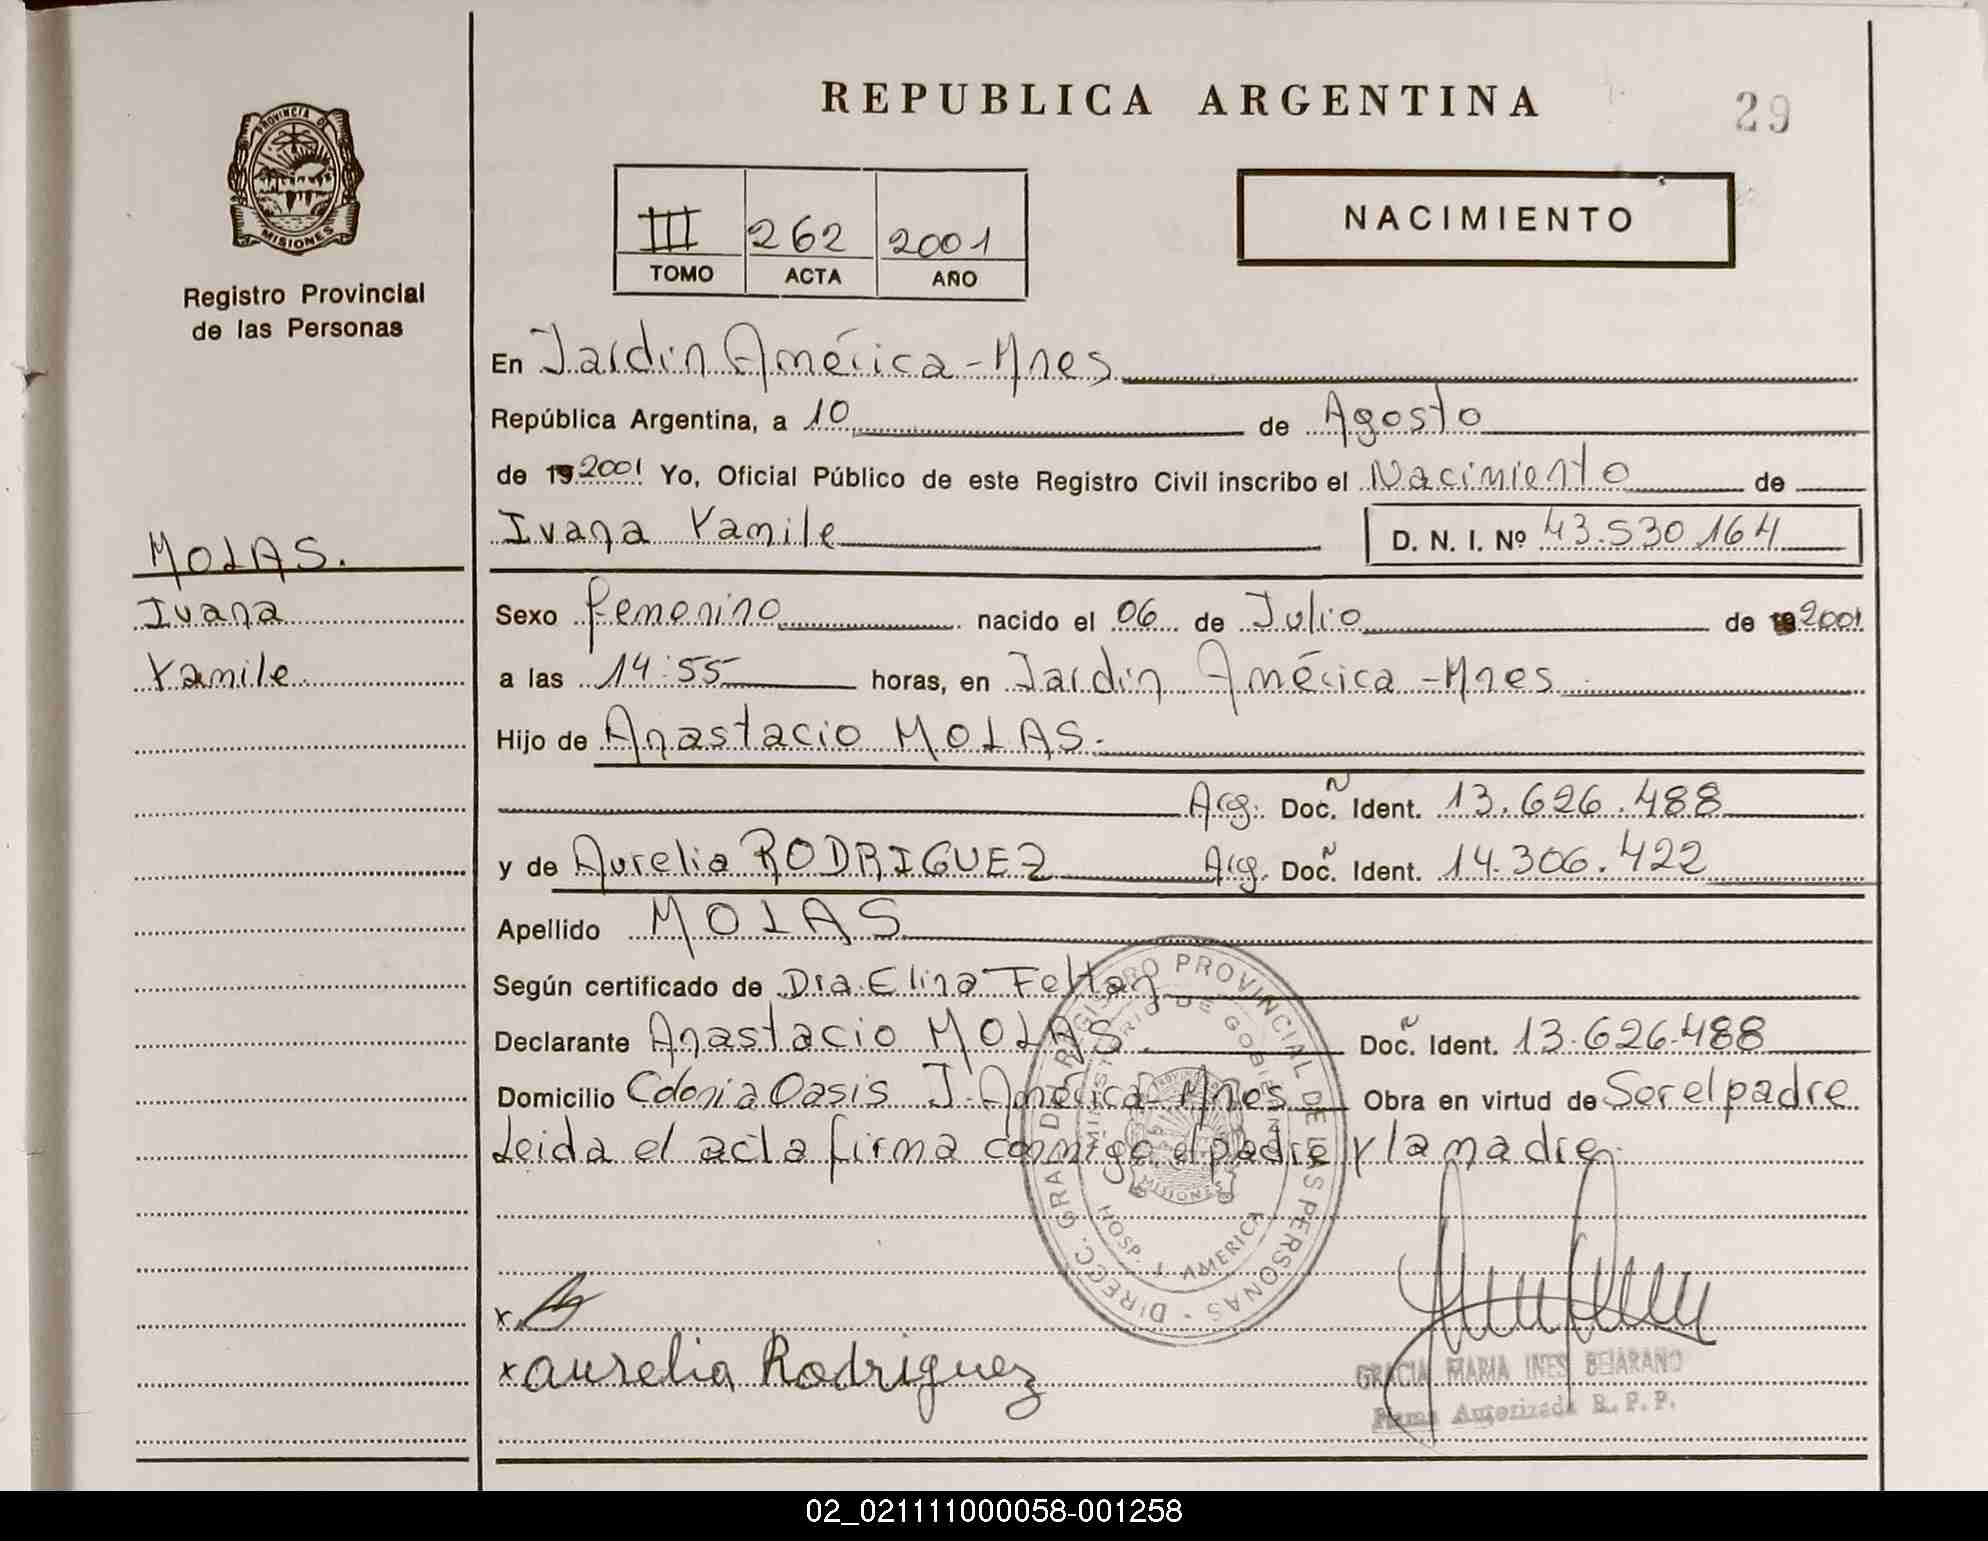 REPUBLICA ARGENTINA
29
PROVINCIA DE
MISIONES
Registro Provincial
de las Personas
III 262 2001
TOMO ACTA AÑO
NACIMIENTO
En Jardín América - Mnes
República Argentina, a 10 de Agosto
de 19 2001 Yo, Oficial Público de este Registro Civil inscribo el Nacimiento de
Ivana Yamile D. N. I. Nº 43.530.164
MOLAS.
Ivana
Yamile
Sexo femenino nacido el 06 de Julio de 19 2001
a las 14:55 horas, en Jardín América - Mnes
Hijo de Anastacio MOLAS.
Arg. Doc. Ident. 13.626.488
y de Aurelia RODRIGUEZ Arg. Doc. Ident. 14.306.422
Apellido MOLAS
Según certificado de Dra Elina Feltan
Declarante Anastacio MOLAS. Doc. Ident. 13.626.488
Domicilio Colonia Oasis J. América - Mnes Obra en virtud de Ser el padre
Leida el acta firma conmigo el padre y la madre.
DIRECC. GRAL. DEL REGISTRO PROVINCIAL DE LAS PERSONAS
MINISTERIO DE GOBIERNO
MISIONES
HOSP. J. AMERICA
x
x aurelia Rodriguez
GRACIA MARIA INES BEJARANO
Firma Autorizada R. P. P.
02_021111000058-001258